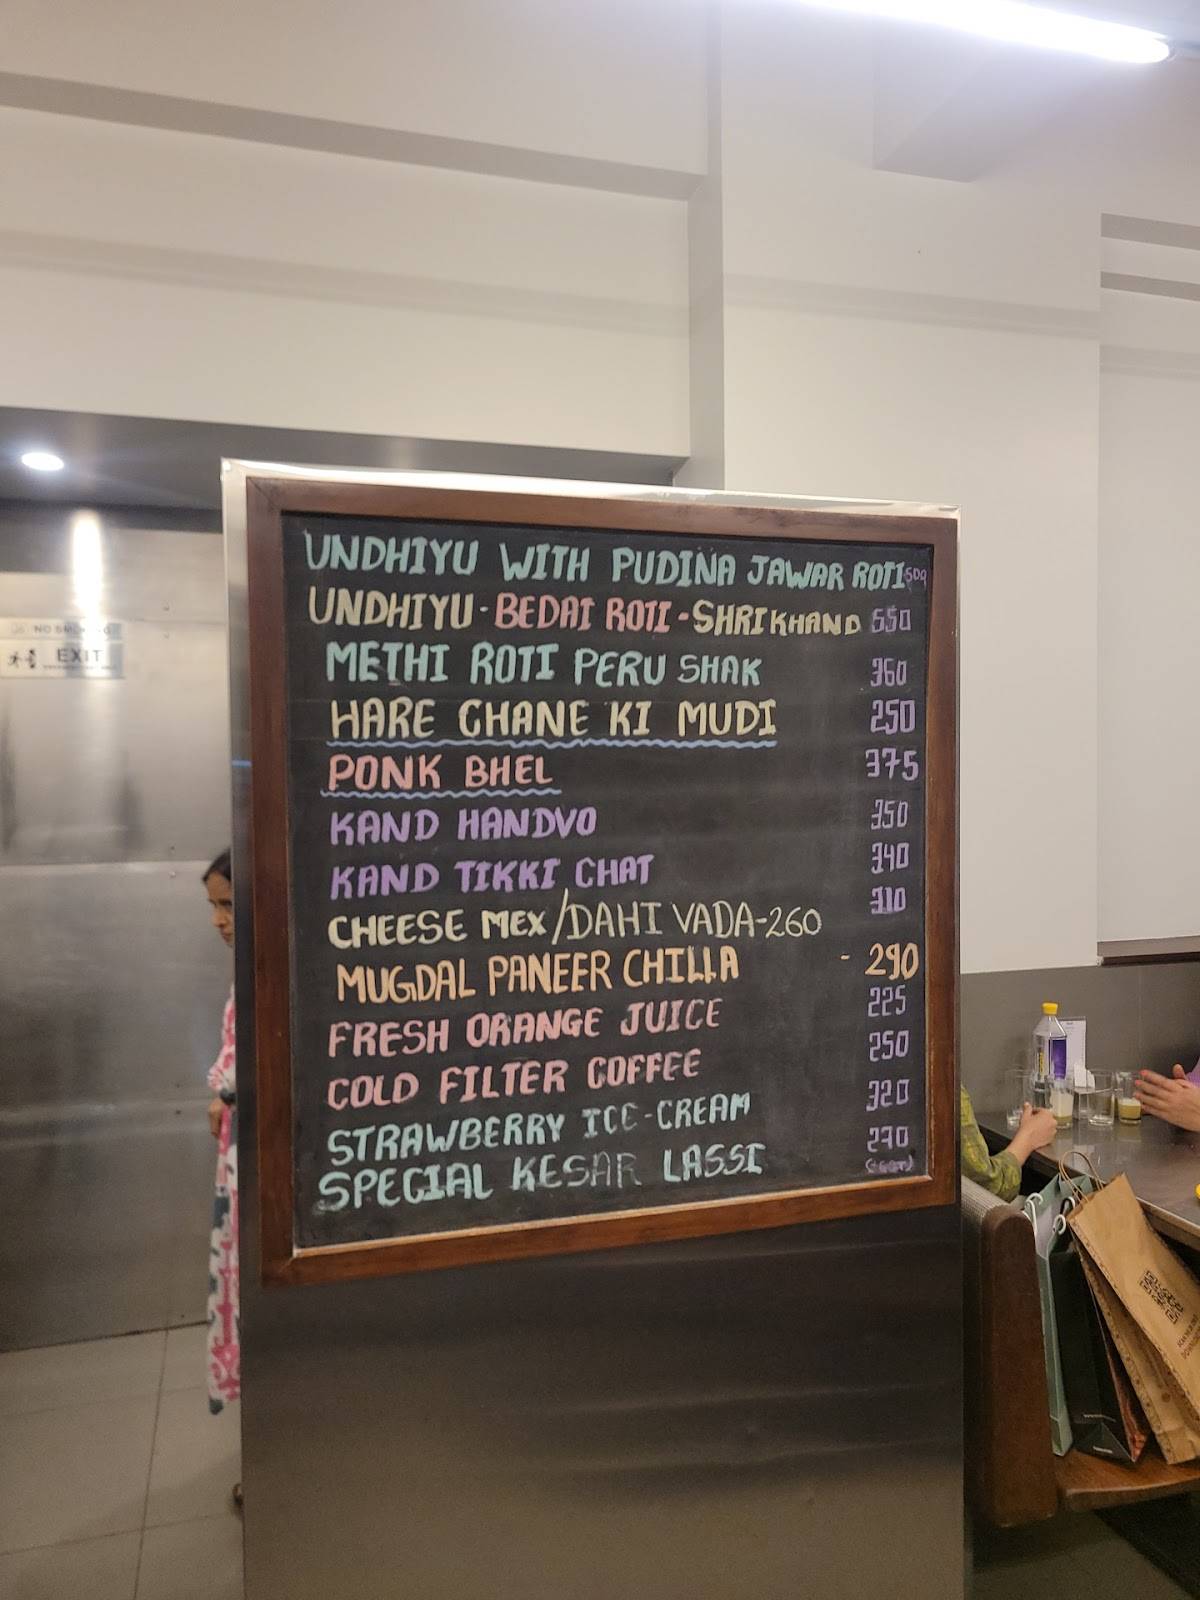 UNDHIYU WITH PUDINA JAWAR ROTI 500
UNDHIYU - BEDAI ROTI - SHRIKHAND 550
METHI ROTI PERU SHAK 360
HARE CHANE KI MUDI 250
PONK BHEL 375
KAND HANDVO 350
KAND TIKKI CHAT 340
CHEESE MEX/DAHI VADA-260 310
MUGDAL PANEER CHILLA - 290
FRESH ORANGE JUICE 225
COLD FILTER COFFEE 250
STRAWBERRY ICE-CREAM 320
SPECIAL KESAR LASSI 270
NO SMOKING
EXIT